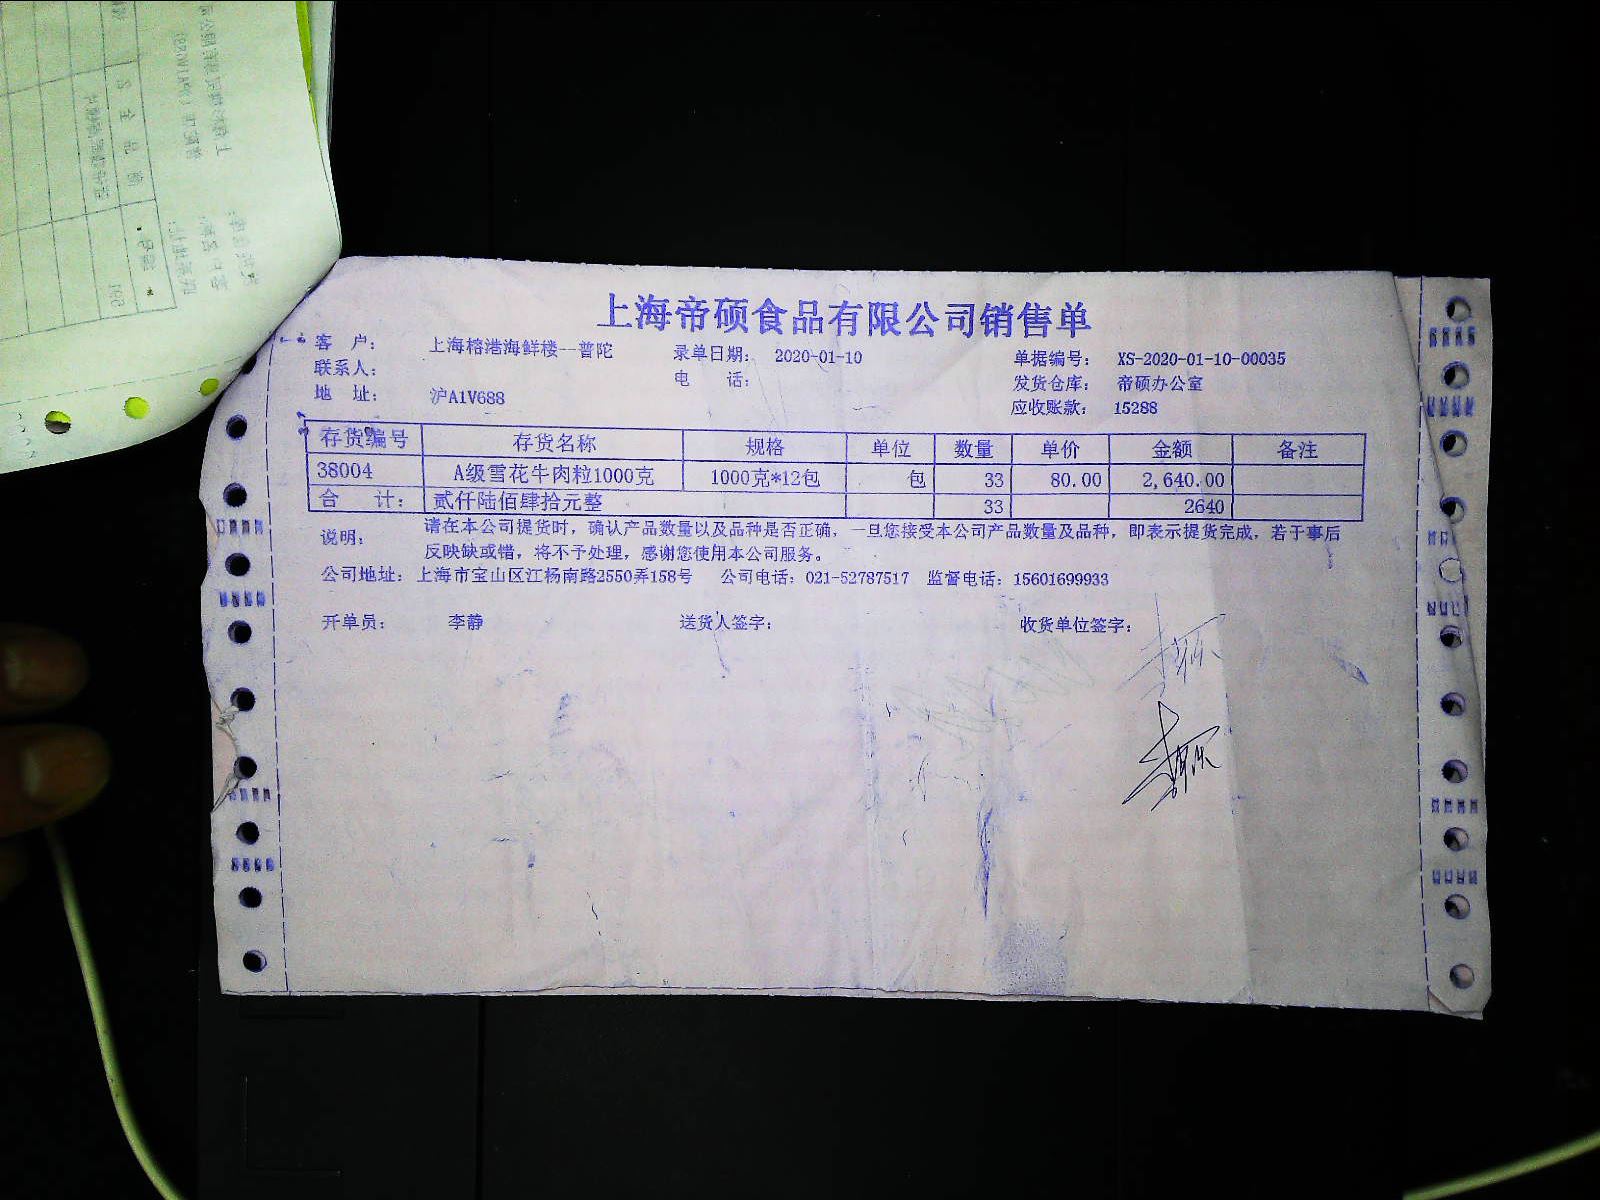 上海帝硕食品有限公司销售单
客 户： 上海榕港海鲜楼--普陀 录单日期： 2020-01-10 单据编号： XS-2020-01-10-00035
联系人： 电 话： 发货仓库： 帝硕办公室
地 址： 沪A1V688 应收账款： 15288
存货编号 存货名称 规格 单位 数量 单价 金额 备注
38004 A级雪花牛肉粒1000克 1000克*12包 包 33 80.00 2,640.00
合 计： 贰仟陆佰肆拾元整 33 2640
说明： 请在本公司提货时，确认产品数量以及品种是否正确，一旦您接受本公司产品数量及品种，即表示提货完成，若于事后
反映缺或错，将不予处理，感谢您使用本公司服务。
公司地址：上海市宝山区江杨南路2550弄158号 公司电话：021-52787517 监督电话：15601699933
开单员： 李静 送货人签字： 收货单位签字：